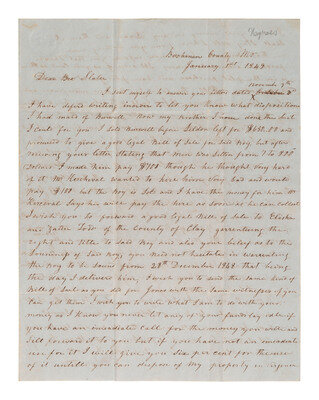 Negroes
Buchanan County Mo.
January 1st 1849
Dear Bro Slater
I seat myself to answer your letter dated November 9th
I have defered writing sooner to let you know what disposition
I had made of Burwell Now my brother I have done the best
I could for you I sold Burwell before Seldon left for $650.00 and
promised to give a good legal Bill of Sale for said boy, but after
receiving your letter stating that Men was selling from 7 to 800
Dollars I made them pay $700 though he thought they have
it Mr Hereford wanted to have him long and wanted
pay $700 but the boy is sold and I have the money for him Mr
Hereford says he will pay the hire as soon as he can collect
I wish you to forward a good legal Bill of Sale to Elisha
and Zatter Todd of the County of Clay garrenteeing the
right and title to said boy and also your belief as to the
Soundness of said boy, you need not hesitate in warrenting
the boy to be sound from 28th December 1848 that being
the day I delivered him, I wish you to send the same kind of
Bill of Sail as you did for Jones with the same witnesses if you
can get them I wish you to write what I am to do with your
money as I know you never let any of your funds lay idle if
you have an immediate call for the money you
will forward it to you but if you have not an immediate
use for it I will give you six per cent for the use
of it untill you can dispose of my property in Virginia